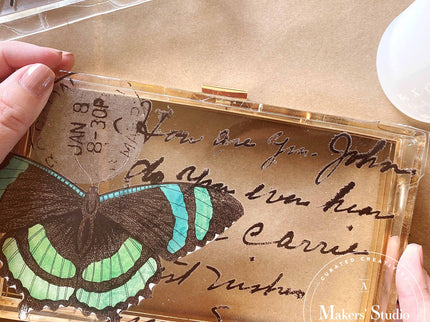 JAN 8
8-30P
How are you John
do you ever hear
Carrie
Best wishes
CURATED CREA
A
MAKERS' STUDIO
Makers' Studio